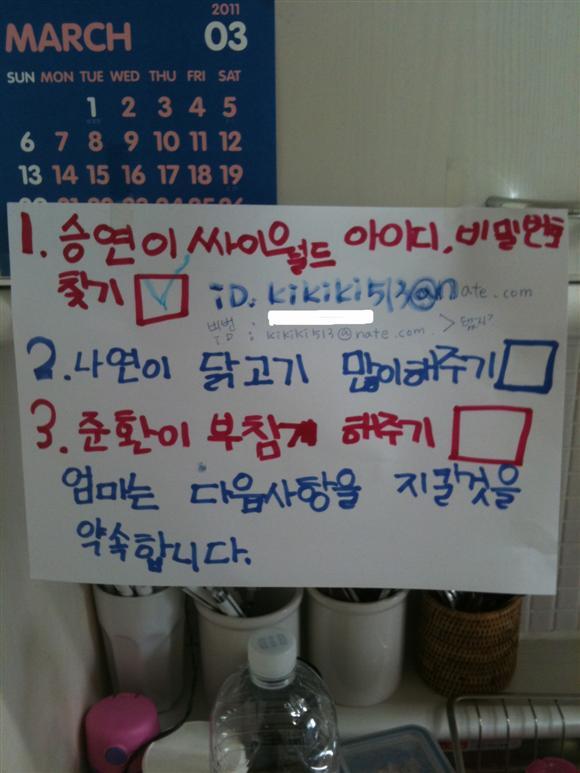 2011
MARCH 03
SUN MON TUE WED THU FRI SAT
1 2 3 4 5
6 7 8 9 10 11 12
13 14 15 16 17 18 19
1.승연이 싸이월드 아이디, 비밀번호
찾기
iD: kikiki513@nate.com
: kikiki1513@nate.com. >
2. 나연이 닭고기 많이해주기
3. 준환이 부침개 해주기
엄마는 다음사항을 지킬것을
약속합니다.